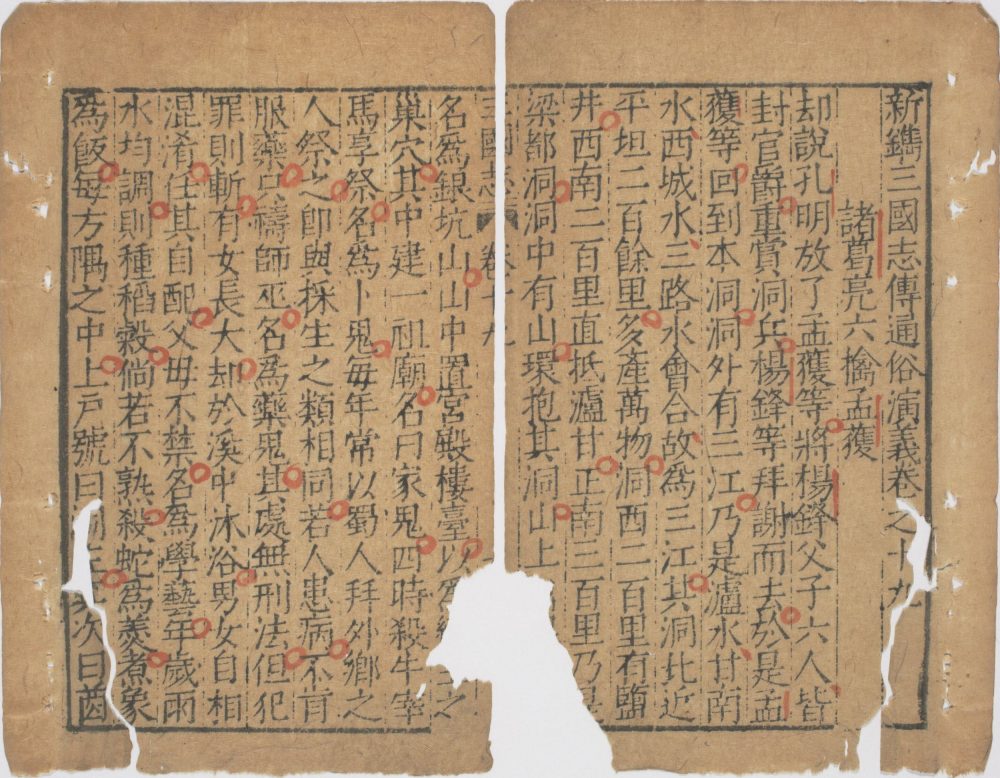 新鐫三國志傳通俗演義卷之十九
諸葛亮六擒孟獲
却說孔明放了孟獲等將楊鋒父子六人皆
封官爵重賞洞兵楊鋒等拜謝而去於是孟
獲等回到本洞洞外有三江乃是瀘水甘南
水西城水三路水會合故為三江其洞北近
平坦二百餘里多產萬物洞西二百里有鹽
井西南二百里直抵瀘甘正南三百里乃是
梁都洞洞中有山環抱其洞山上
三國志 卷十九
名為銀坑山山中置宮殿樓臺以為
巢穴其中建一祖廟名曰家鬼四時殺牛宰
馬享祭名為卜鬼每年常以蜀人拜外鄉之
人祭之即與採生之類相同若人患病不肯
服藥只禱師巫名為藥鬼其處無刑法但犯
罪則斬有女長大却於溪中沐浴男女自相
混淆任其自配父母不禁名為學藝年歲雨
水均調則種稻穀倘若不熟殺蛇為羹煮象
為飯每方隅之中上戶號曰洞主次曰酋